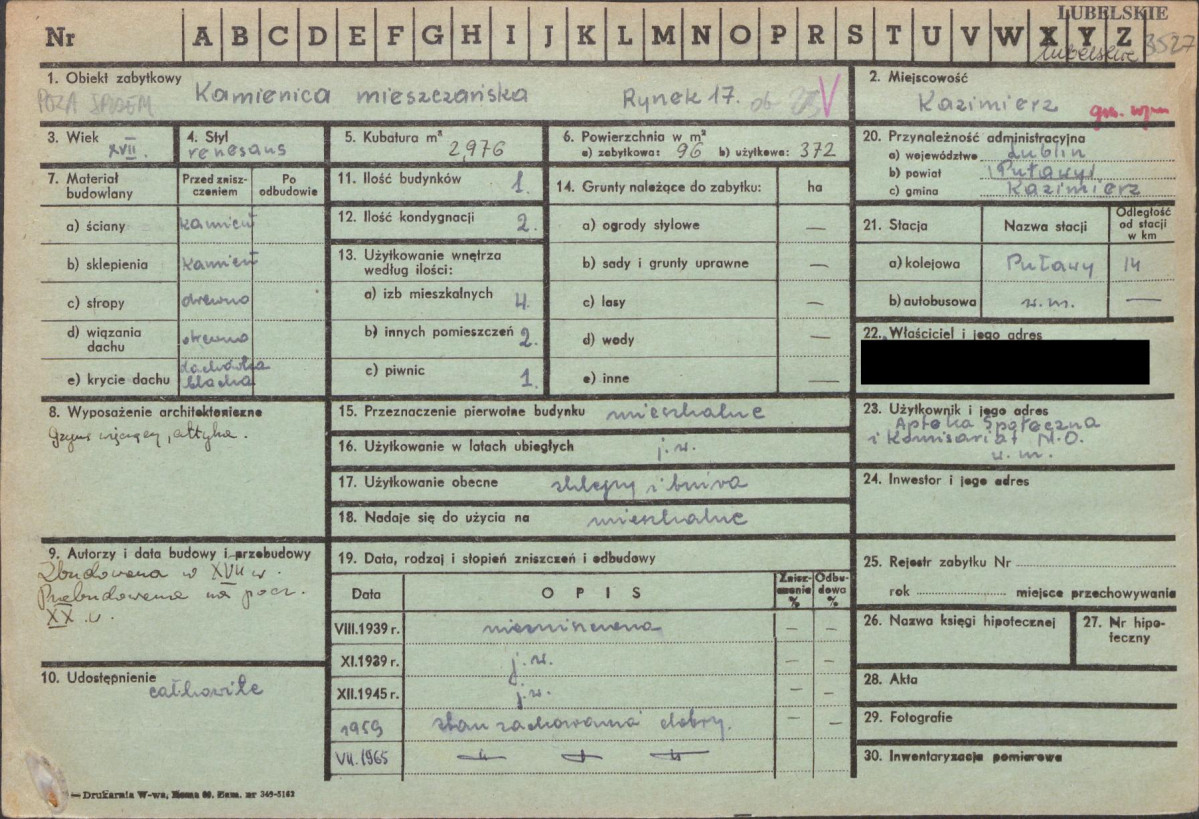 LUBELSKIE
Nr A B C D E F G H I J K L M N O P R S T U V W X Y Z 3527
lubelskie
1. Obiekt zabytkowy
POZA SPISEM Kamienica mieszczańska Rynek 17. ob V
2. Miejscowość
Kazimierz
3. Wiek
XVII.
4. Styl
renesans
5. Kubatura m³
2976
6. Powierzchnia w m²
a) zabytkowa: 96 b) użytkowa: 372
7. Materiał budowlany
Przed zniszczeniem
Po odbudowie
a) ściany kamień
b) sklepienia kamień
c) stropy drewno
d) wiązania dachu drewno
e) krycie dachu dachówka blacha
11. Ilość budynków 1.
12. Ilość kondygnacji 2.
13. Użytkowanie wnętrza według ilości:
a) izb mieszkalnych 4.
b) innych pomieszczeń 2.
c) piwnic 1.
14. Grunty należące do zabytku: ha
a) ogrody stylowe —
b) sady i grunty uprawne —
c) lasy —
d) wody —
e) inne —
20. Przynależność administracyjna
a) województwo Lublin
b) powiat Puławy
c) gmina Kazimierz
21. Stacja Nazwa stacji Odległość od stacji w km
a) kolejowa Puławy 14
b) autobusowa w.m. —
22. Właściciel i jego adres
8. Wyposażenie architektoniczne
Gzyms wieńczący, attyka.
15. Przeznaczenie pierwotne budynku mieszkalne
16. Użytkowanie w latach ubiegłych j.w.
17. Użytkowanie obecne sklepy i biura
18. Nadaje się do użycia na mieszkalne
23. Użytkownik i jego adres
Apteka Społeczna
i Komisariat M.O.
w.m.
24. Inwestor i jego adres
9. Autorzy i data budowy i przebudowy
Zbudowana w XVII w.
Przebudowana na pocz.
XX w.
10. Udostępnienie
całkowite
19. Data, rodzaj i stopień zniszczeń i odbudowy
Data OPIS Zniszczenie % Odbudowa %
VIII.1939 r. niezniszczona — —
XI.1939 r. j.w. — —
XII.1945 r. j.w. — —
1959 stan zachowania dobry. — —
VII.1965 —"— —"— —"— — —
25. Rejestr zabytku Nr
rok miejsce przechowywania
26. Nazwa księgi hipotecznej
27. Nr hipoteczny
28. Akta
29. Fotografie
30. Inwentaryzacja pomiarowa
— Drukarnia W-wa, Zam. nr 349-5162